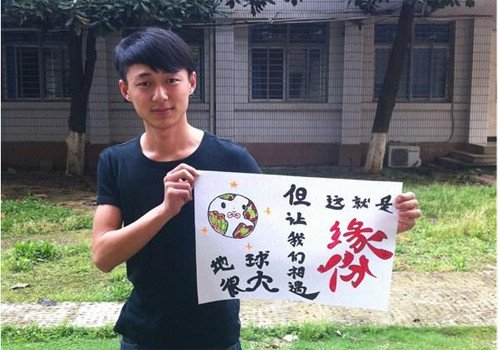 地球
很大
但让我们相遇
这就是
缘份